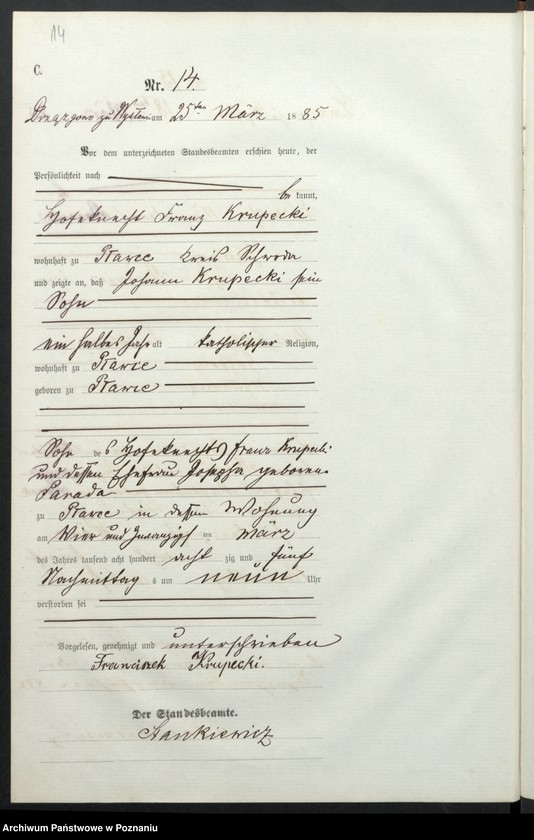 14
C.
Nr. 14.
am 25ten März 1885
Vor dem unterzeichneten Standesbeamten erschien heute, der
Persönlichkeit nach
be kannt,
Hofeknecht Franz Krupecki
wohnhaft zu Kreis Schroda
und zeigte an, daß Johann Krupecki sein
Sohn
ein halbes Jahr alt katholischer Religion,
wohnhaft zu
geboren zu
Sohn des Hofeknechts Franz Krupecki
und dessen Ehefrau Josepha geborene
Parada
zu in dessen Wohnung
am Vier und zwanzigsten März
des Jahres tausend acht hundert acht zig und fünf
Nachmittags um neun Uhr
verstorben sei
Vorgelesen, genehmigt und unterschrieben
Franciszek Krupecki.
Der Standesbeamte.
Stankiewicz
Archiwum Państwowe w Poznaniu